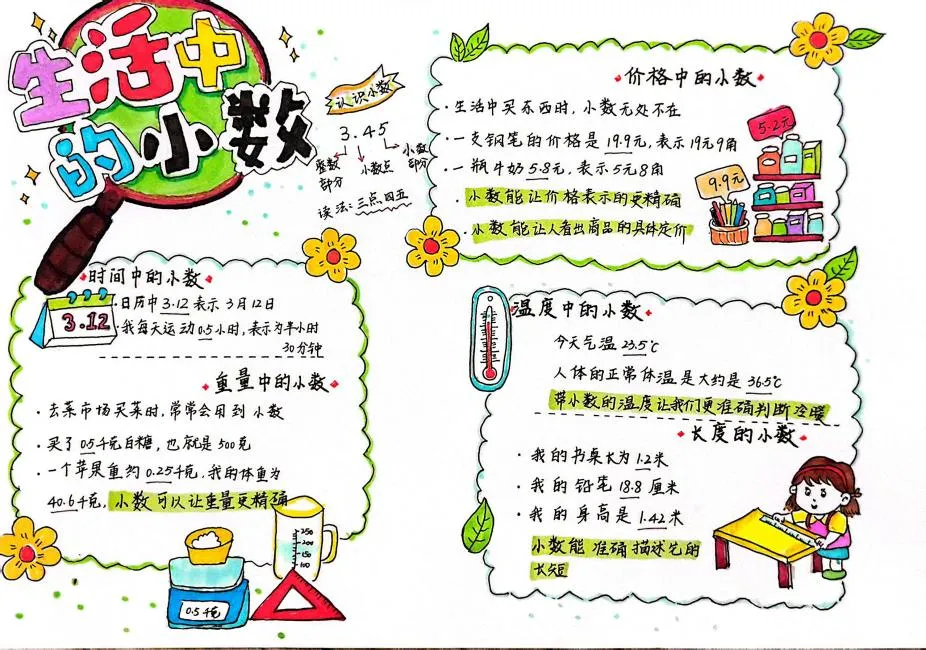 生活中
的小数
认识小数
3.45
整数部分
小数点
小数部分
读法:三点四五
·价格中的小数·
·生活中买东西时,小数无处不在
·一支钢笔的价格是19.9元,表示19元9角
·一瓶牛奶5.8元,表示5元8角
·小数能让价格表示的更精确
·小数能让人看出商品的具体定价
5.2元
9.9元
·时间中的小数·
3.12
·日历中3.12表示3月12日
·我每天运动0.5小时,表示为半小时
30分钟
·重量中的小数·
·去菜市场买菜时,常常会用到小数
·买了0.5千克白糖,也就是500克
·一个苹果重约0.25千克,我的体重为
40.6千克,小数可以让重量更精确
250
200
150
100
0.5千克
温度中的小数·
今天气温23.5℃
人体的正常体温是大约是36.5℃
带小数的温度让我们更准确判断冷暖
·长度的小数·
·我的书桌长为1.2米
·我的铅笔18.8厘米
·我的身高是1.42米
小数能准确描述它的
长短